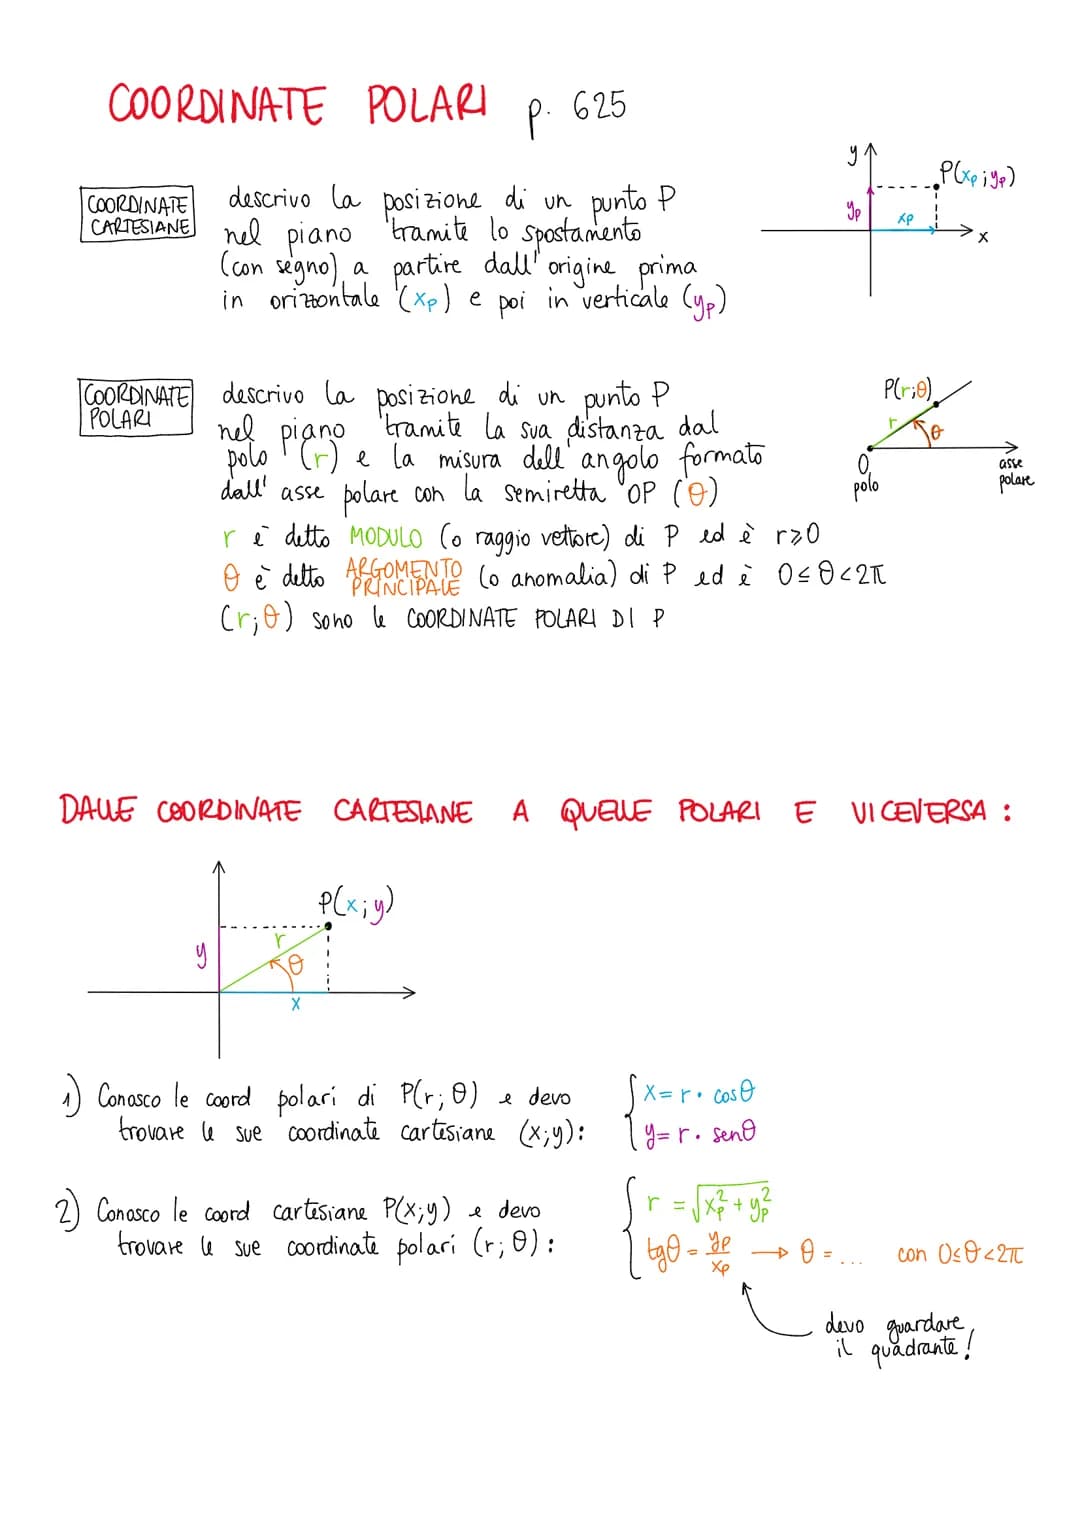 COORDINATE POLARI p. 625
COORDINATE
CARTESIANE
descrivo la posizione di un punto P
nel piano tramite lo spostamento
(con segno) a partire dall'origine prima
in orizzontale (xp) e poi in verticale (yp)
y
P(xp;yp)
yp
xp
x
COORDINATE
POLARI
descrivo la posizione di un punto P
nel piano tramite la sua distanza dal
polo (r) e la misura dell'angolo formato
dall'asse polare con la semiretta OP (θ)
P(r;θ)
r
θ
O
polo
asse
polare
r è detto MODULO (o raggio vettore) di P ed è r≥0
θ è detto ARGOMENTO PRINCIPALE (o anomalia) di P ed è 0≤θ<2π
(r;θ) sono le COORDINATE POLARI DI P
DALLE COORDINATE CARTESIANE A QUELLE POLARI E VICEVERSA :
P(x;y)
y
r
θ
x
1) Conosco le coord polari di P(r;θ) e devo
trovare le sue coordinate cartesiane (x;y):
{x=r· cosθ
y=r· senθ
2) Conosco le coord cartesiane P(x;y) e devo
trovare le sue coordinate polari (r;θ):
{r = √xp² + yp²
tgθ = yp/xp → θ = ... con 0≤θ<2π
devo guardare
il quadrante!